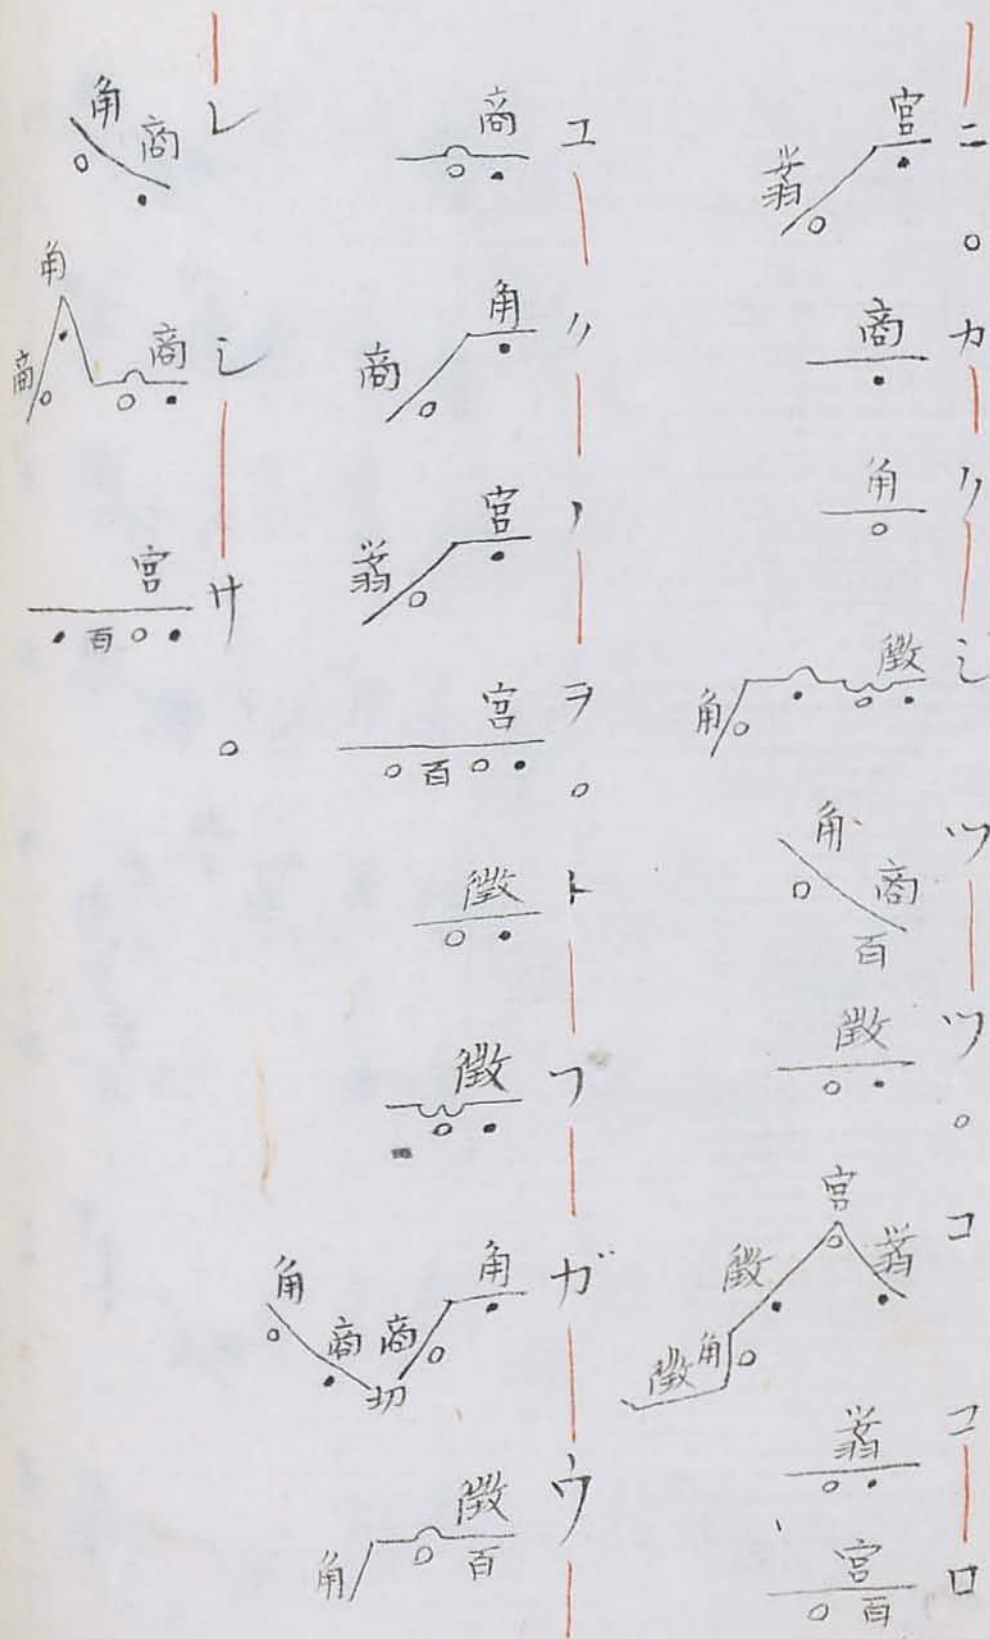 ニ 宮 羽
カ 商
リ 角
シ 徴 角
ツ 角 商 百
ツ 徴
コ 宮 羽 徴 角 徴
コ 羽
ロ 宮 百
エ 商
リ 角 商
ノ 宮 羽
ヲ 宮 百
ト 徴
フ 徴
ガ 角 商 切 商 角
ウ 徴 百 角
レ 角 商
シ 商 角 商
サ 宮 百